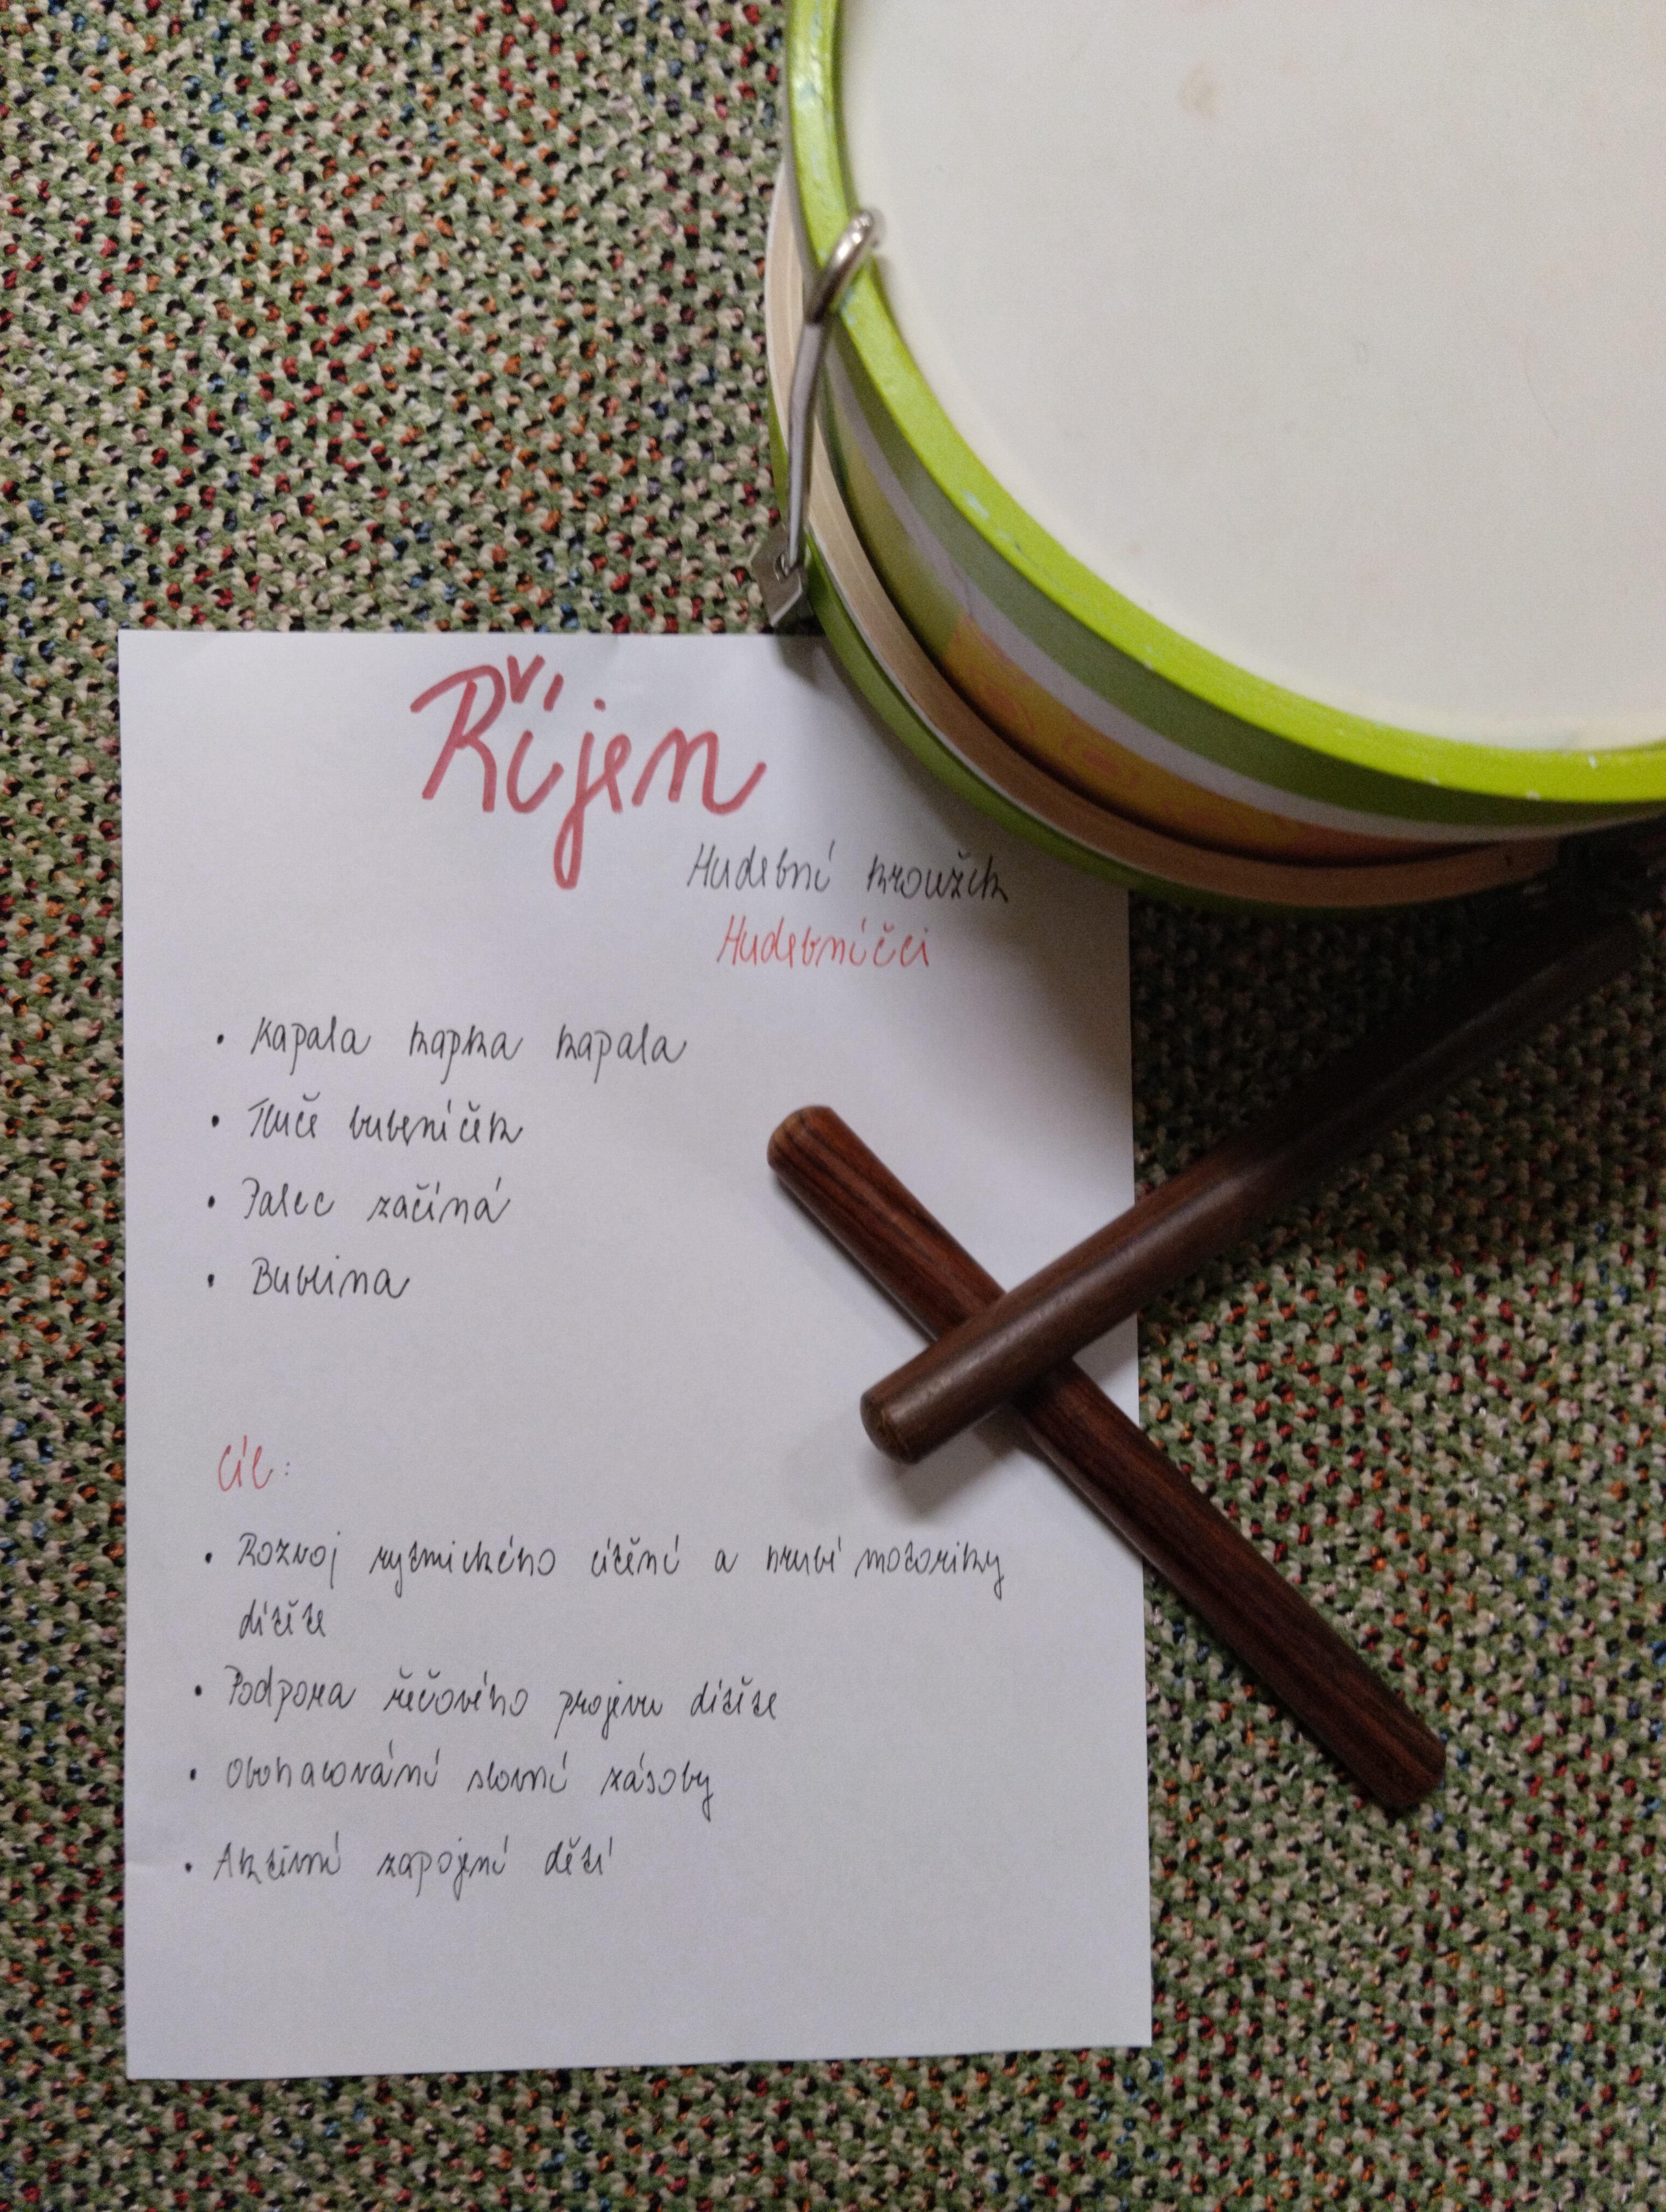 Říjen
Hudební kroužek
Hudebníčci
• Kapala kapka kapala
• Tluče bubeníček
• Palec začíná
• Bublina
Cíl:
• Rozvoj rytmického cítění a hrubé motoriky
dítěte
• Podpora řečového projevu dítěte
• Obohacování slovní zásoby
• Aktivní zapojení dětí